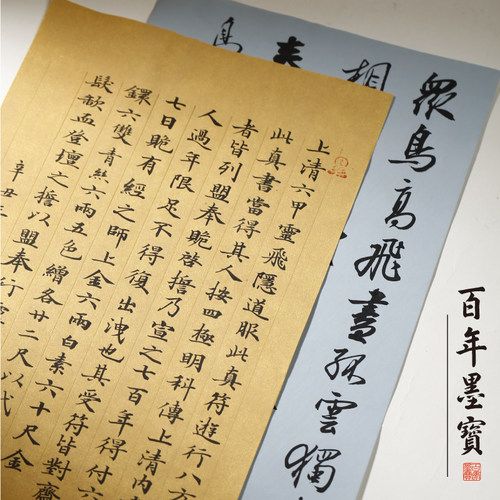 上清六甲靈飛隱道服此真符遊行八方
此真書當得其人按四極明科傳上清内
者皆列盟奉跪啓擔乃宣之七百年得付六
人過年限足不得復出洩也其受符皆對齋
七日跪有經之師上金六兩白素六十尺金
鐶六雙青絲六兩五色繒各廿二尺以代
髮歃血登壇之擔以盟奉行
辛丑三
眾鳥高飛盡孤雲獨
相
百年墨寶